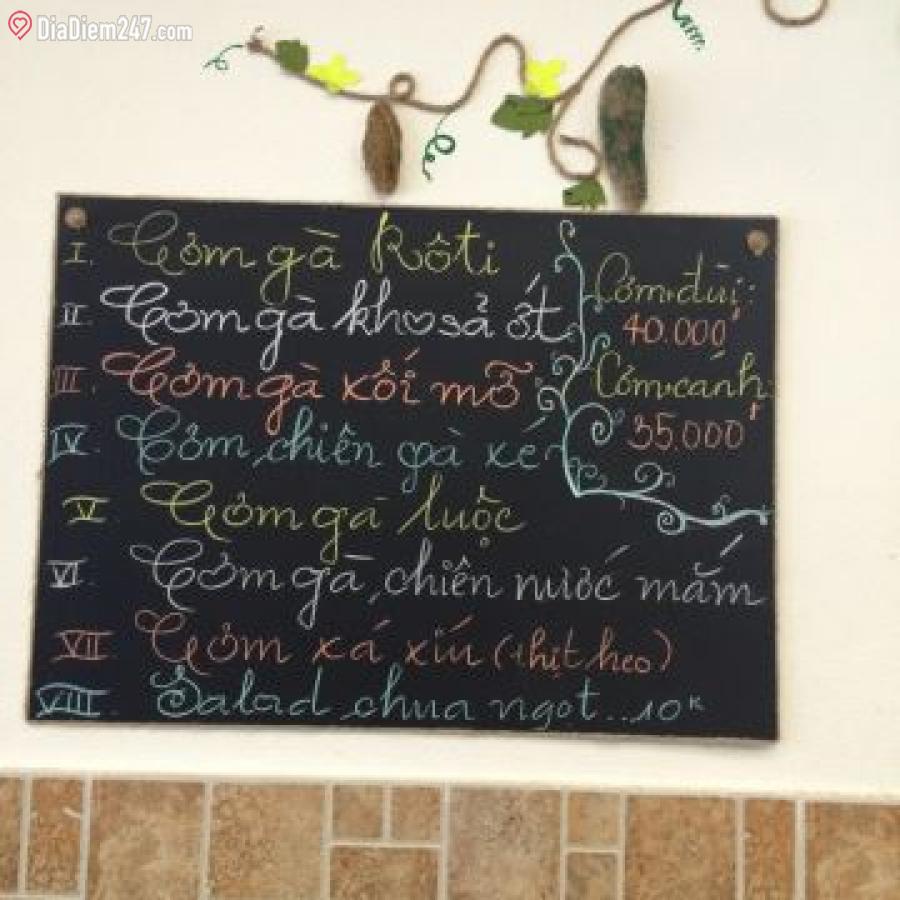 DiaDiem247.com
I. Cơm gà Rôti
II. Cơm gà kho sả ớt
III. Cơm gà xối mỡ
IV. Cơm chiên gà xé
V. Cơm gà luộc
VI. Cơm gà chiên nước mắm
VII. Cơm xá xíu (thịt heo)
VIII. Salad chua ngọt..10K
Cơm đùi:
40.000đ
Cơm cánh:
35.000đ